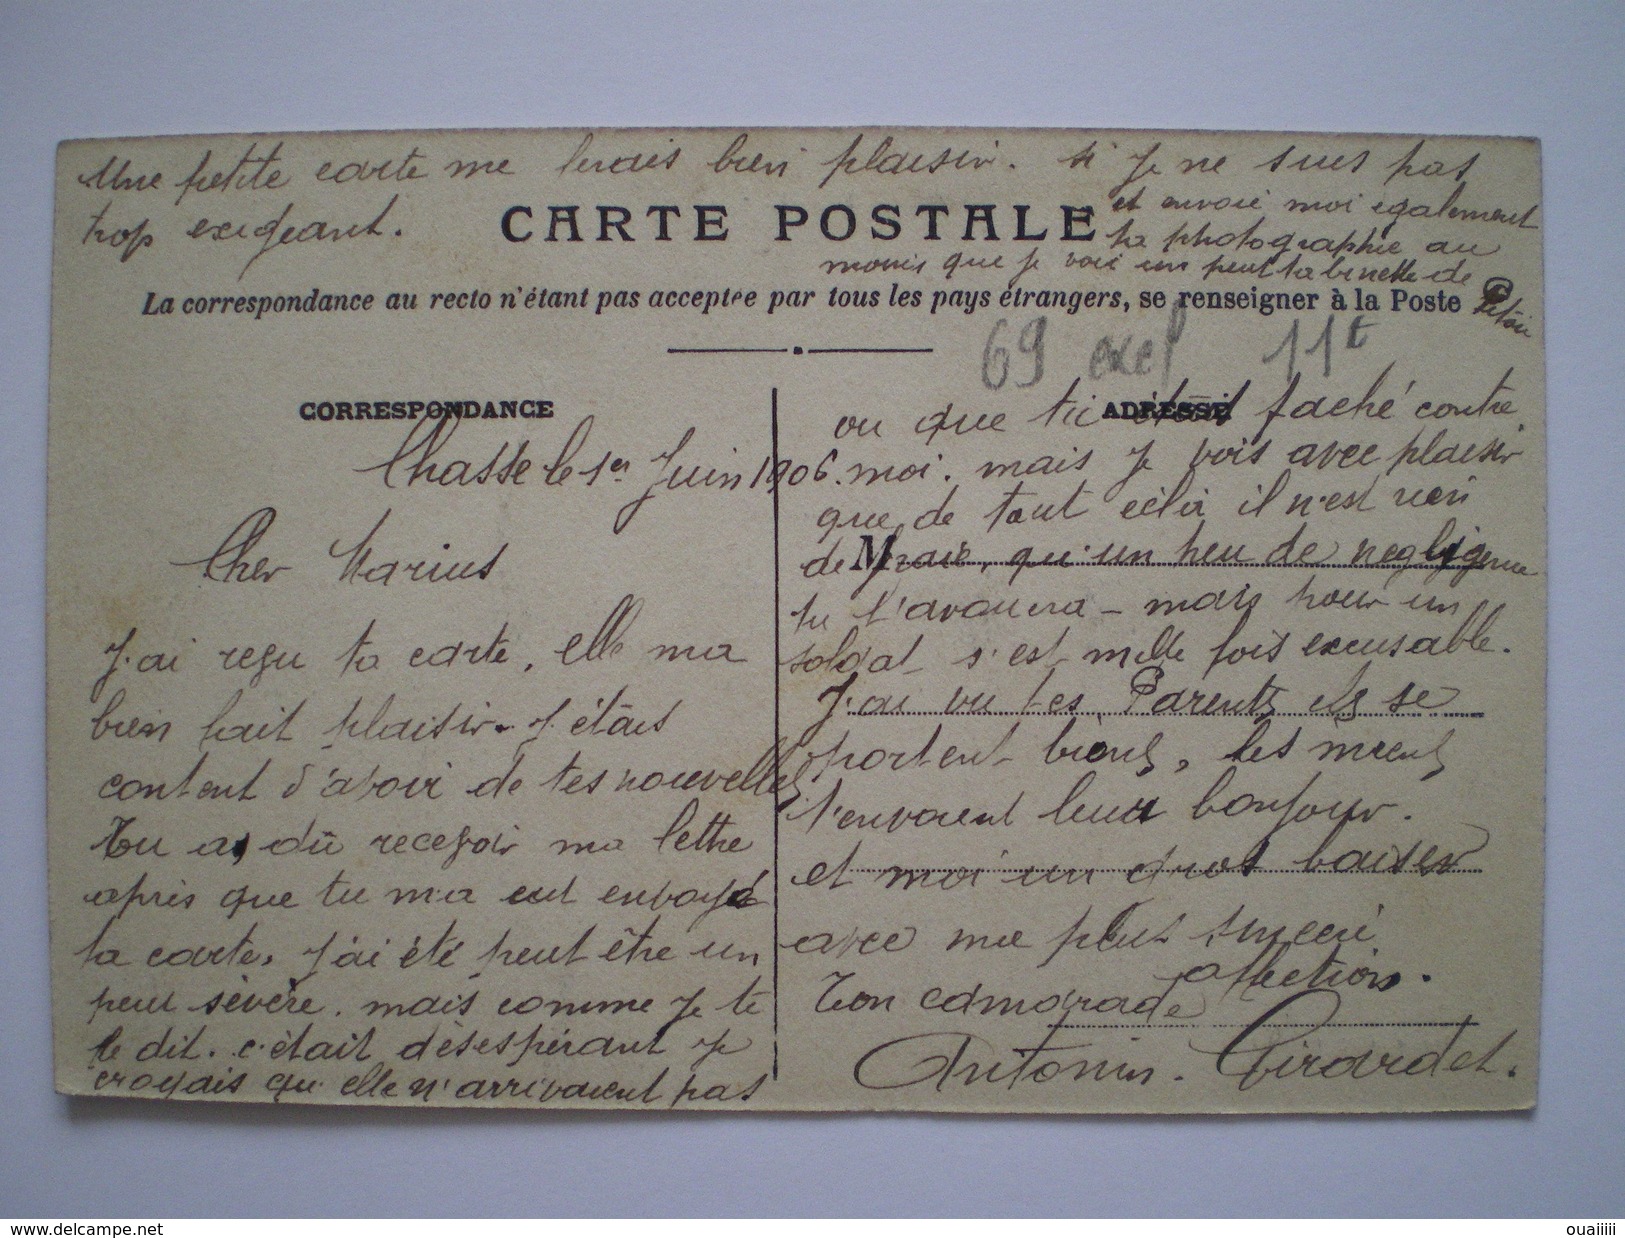 Une petite carte me ferais bien plaisir. si Je ne suis pas
trop exigeant.
et envoie moi egalement
ta photographie au
moins que je voie un peut ta binette de
Petoie
CARTE POSTALE
La correspondance au recto n'étant pas acceptée par tous les pays étrangers, se renseigner à la Poste
69 exel 11t
CORRESPONDANCE
ADRESSE
Chasse le 1er Juin 1906.
Cher Marius
J'ai reçu ta carte, elle ma
bien fait plaisir. J'étais
content d'avoir de tes nouvelles
Tu as dû recevoir ma lettre
après que tu m'a eut envoyé
ta carte. J'ai été peut être un
peut sévère. mais comme Je te
le dit. c'était désespérant Je
croyais qu'elle n'arrivaient pas
ou que tu étais faché contre
moi. mais Je vois avec plaisir
que de tout cèla il n'est rien
de M vrai, qu'un peu de negligence
tu l'avouera - mais pour un
soldat s'est mille fois excusable.
J'ai vu tes Parents ils se
portent biens, les miens
t'envoient leur bonjour.
et moi un gros baiser
avec ma plus sincere
affection.
Ton camarade
Antonin. Girardet.
delcampe.net
ouaiiii